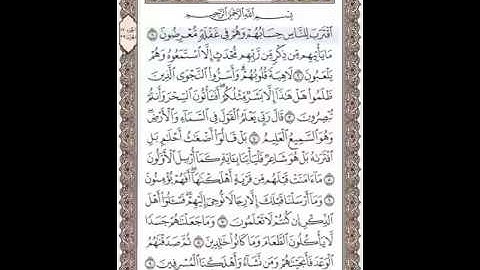 بِسْمِ اللَّهِ الرَّحْمَٰنِ الرَّحِيمِ
اقْتَرَبَ لِلنَّاسِ حِسَابُهُمْ وَهُمْ فِي غَفْلَةٍ مُّعْرِضُونَ ١
مَا يَأْتِيهِم مِّن ذِكْرٍ مِّن رَّبِّهِم مُّحْدَثٍ إِلَّا اسْتَمَعُوهُ وَهُمْ
يَلْعَبُونَ ٢ لَاهِيَةً قُلُوبُهُمْ وَأَسَرُّوا النَّجْوَى الَّذِينَ
ظَلَمُوا هَلْ هَٰذَا إِلَّا بَشَرٌ مِّثْلُكُمْ أَفَتَأْتُونَ السِّحْرَ وَأَنتُمْ
تُبْصِرُونَ ٣ قَالَ رَبِّي يَعْلَمُ الْقَوْلَ فِي السَّمَاءِ وَالْأَرْضِ
وَهُوَ السَّمِيعُ الْعَلِيمُ ٤ بَلْ قَالُوا أَضْغَاثُ أَحْلَامٍ بَلِ
افْتَرَاهُ بَلْ هُوَ شَاعِرٌ فَلْيَأْتِنَا بِآيَةٍ كَمَا أُرْسِلَ الْأَوَّلُونَ
٥ مَا آمَنَتْ قَبْلَهُم مِّن قَرْيَةٍ أَهْلَكْنَاهَا أَفَهُمْ يُؤْمِنُونَ
٦ وَمَا أَرْسَلْنَا قَبْلَكَ إِلَّا رِجَالًا نُّوحِي إِلَيْهِمْ فَاسْأَلُوا أَهْلَ
الذِّكْرِ إِن كُنتُمْ لَا تَعْلَمُونَ ٧ وَمَا جَعَلْنَاهُمْ جَسَدًا
لَّا يَأْكُلُونَ الطَّعَامَ وَمَا كَانُوا خَالِدِينَ ٨ ثُمَّ صَدَقْنَاهُمُ
الْوَعْدَ فَأَنجَيْنَاهُمْ وَمَن نَّشَاءُ وَأَهْلَكْنَا الْمُسْرِفِينَ ٩